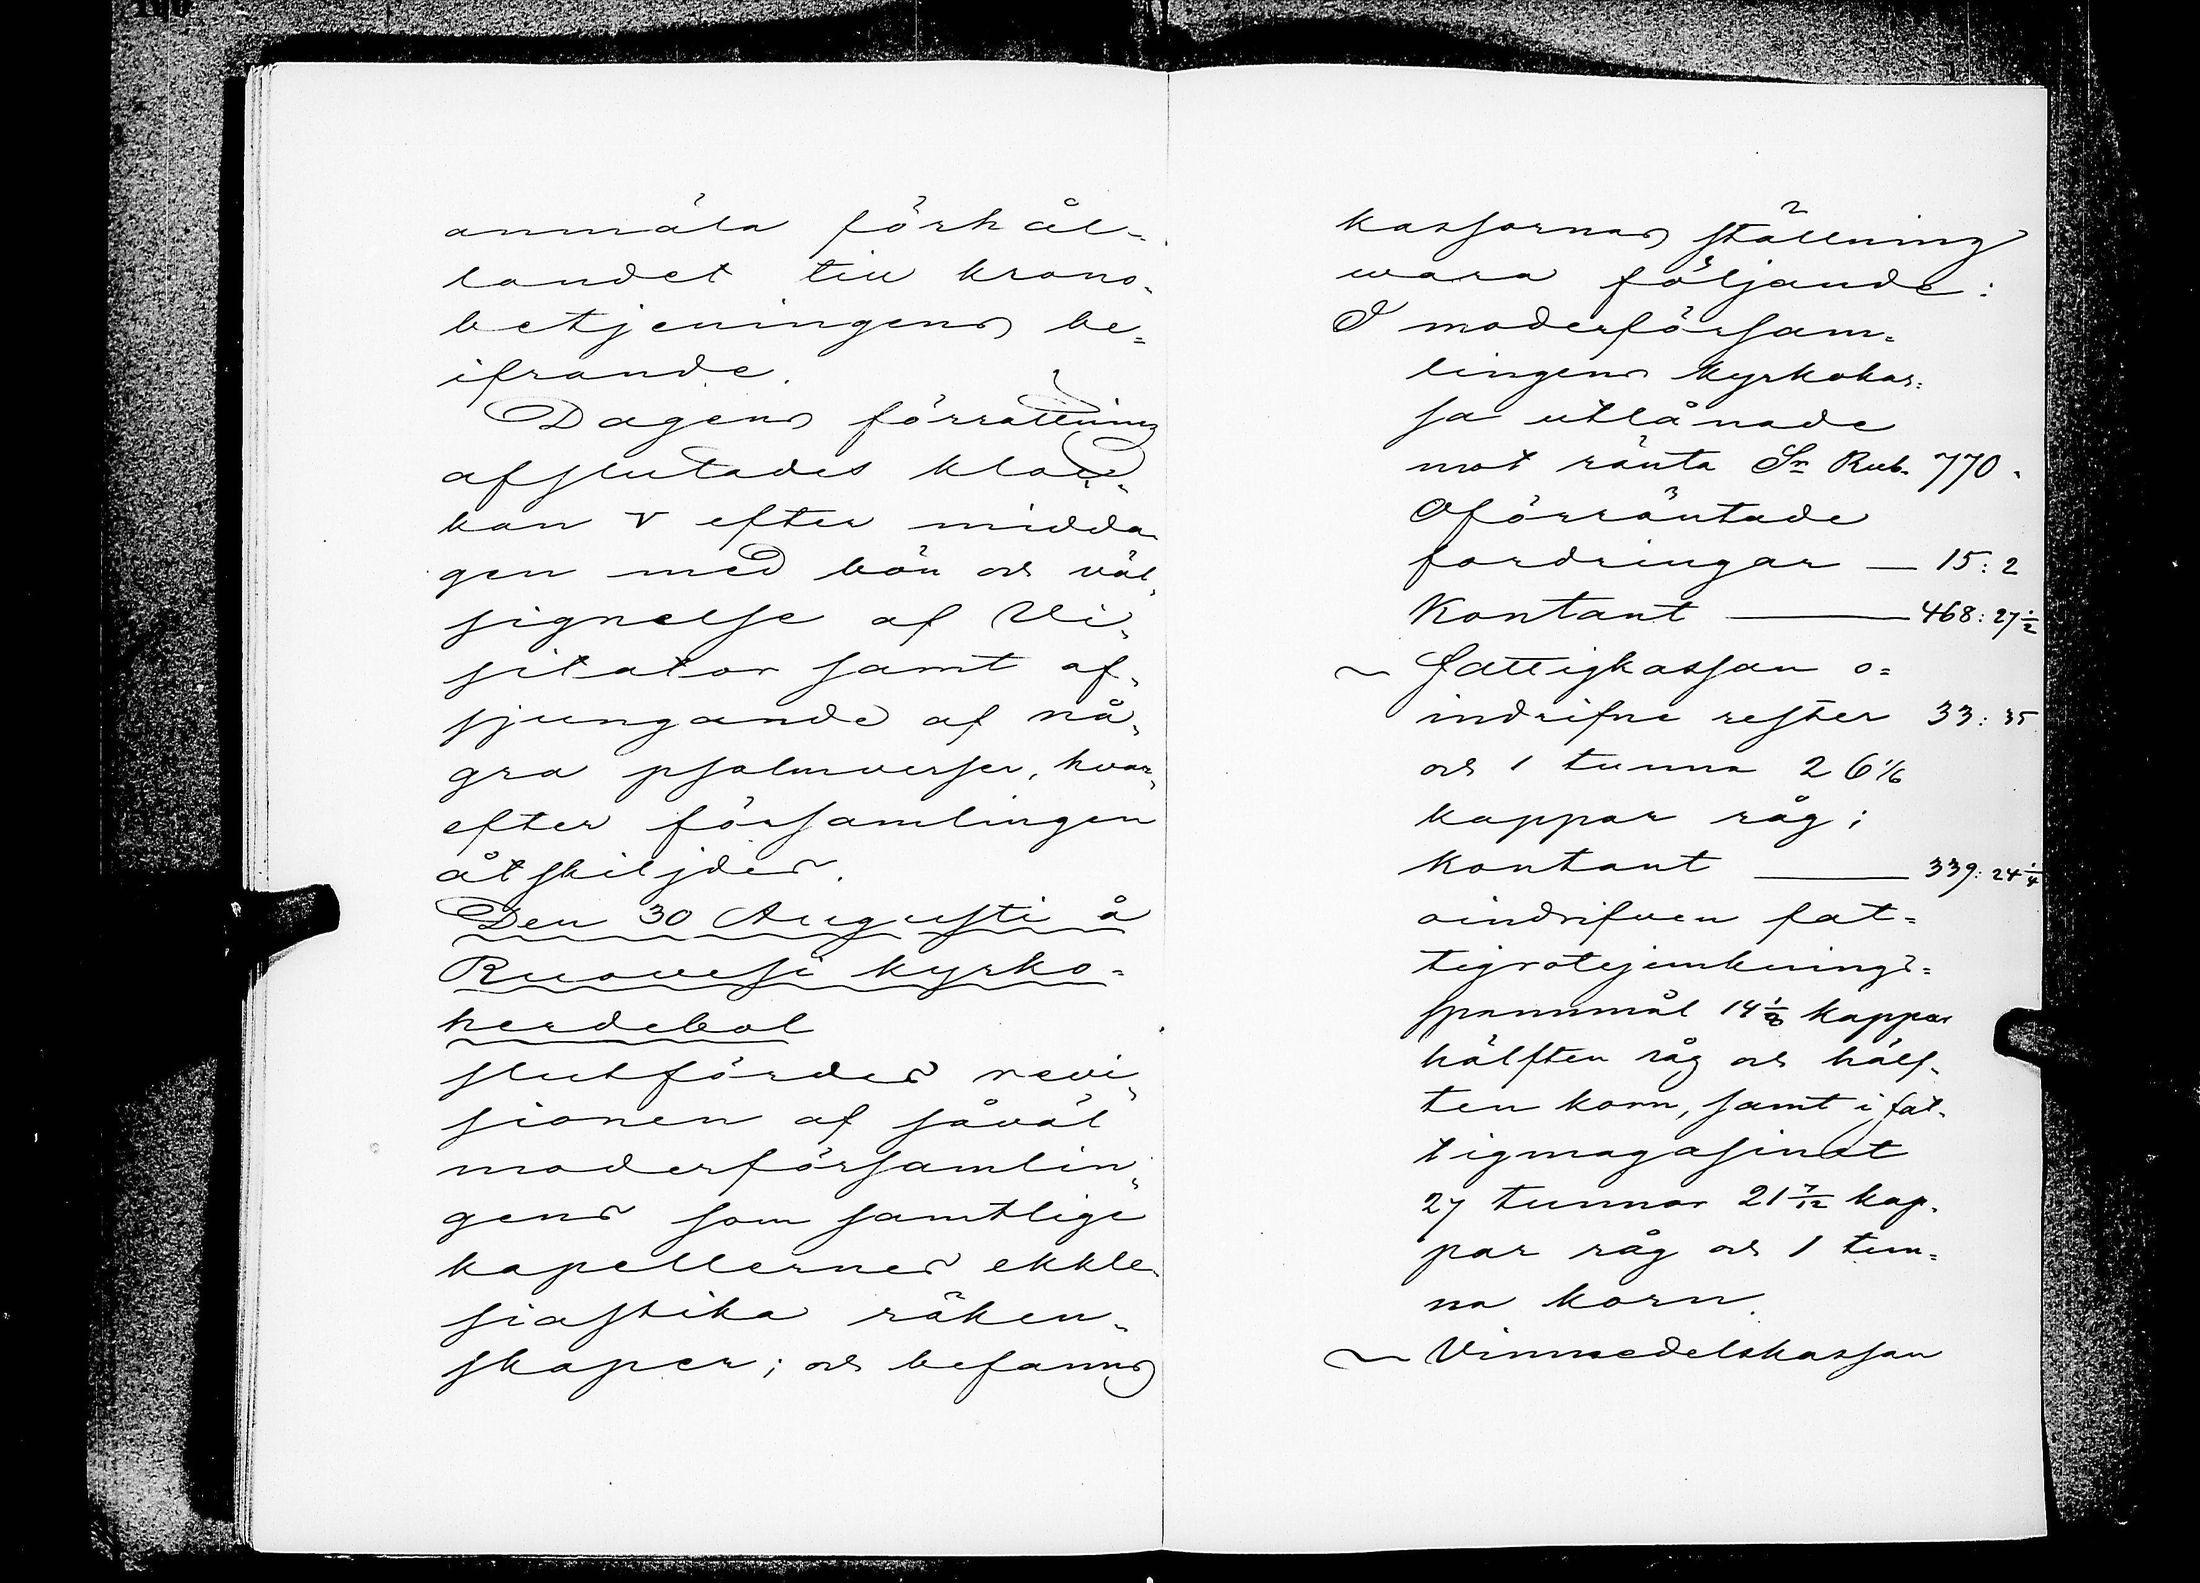 anmäla förhål-
landet till krono-
betjeningens be-
ifrande.
Dagens förrättning
afslutades kloc-
kan V efter midda-
gen med bön och väl-
signelse af Vi-
sitator samt af-
sjungande af nå-
gra psalmverser, hvar-
efter församlingen
åtskiljdes.
Den 30 Augusti å
Ruovesi kyrko-
herdebol
slutfördes revi-
sionen af såväl
moderförsamlin-
gens som samtlige
kapellernes ekkle-
siastika räken-
skaper; och befanns
kassornas ställning
wara följande:
I moderförsam-
lingens kyrkokas-
sa utlånade
mot ränta Sr Rub. 770.
Oförräntade
fordringar — 15: 2
Kontant — 468: 27 1/2
~ Fattigkassan o-
indrifne rester 33: 35
och 1 tunna 26 1/6
kappar råg;
kontant — 339: 24 1/4
oindrifven fat-
tigrotejemknings-
spannmål 14 1/8 kappar
hälften råg och hälf-
ten korn, samt i fat-
tigmagasinet
27 tunnor 21 7/12 kap-
par råg och 1 tun-
na korn.
~ Vinmedelskassan